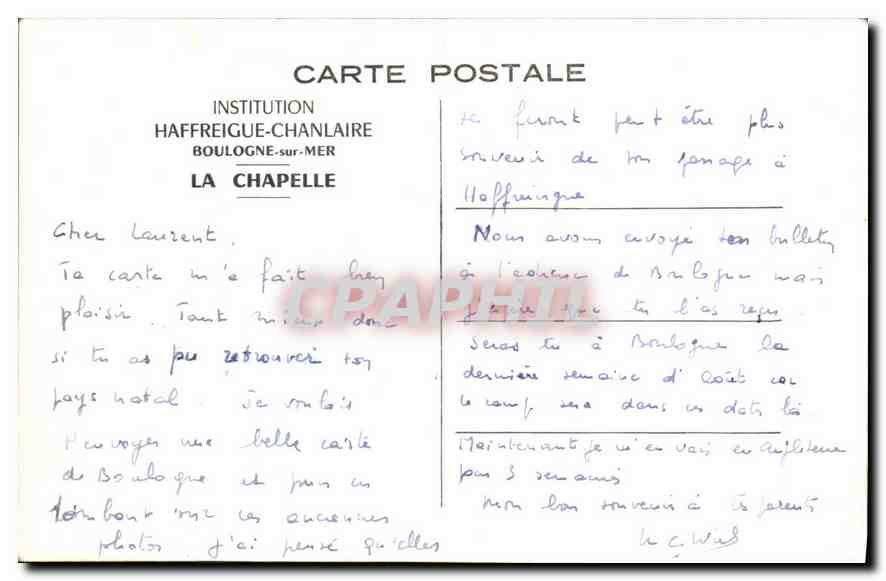 CARTE POSTALE
INSTITUTION
HAFFREIGUE-CHANLAIRE
BOULOGNE-sur-MER
LA CHAPELLE
Cher Laurent,
Ta carte m'a fait bien
plaisir. Tant mieux donc
si tu as pu retrouver ton
pays natal. Je voulais
t'envoyer une belle carte
de Boulogne et puis en
tombant sur ces anciennes
photos j'ai pensé qu'elles
te feront peut être plus
souvenir de ton passage à
Haffreingue
Nous avons envoyé ton bulletin
à l'adresse de Boulogne mais
j'espère que tu l'as reçu.
Seras tu à Boulogne la
dernière semaine d'Août car
le camp sera dans ces dates là.
Maintenant je m'en vais en Angleterre
pour 3 semaines
Mon bon souvenir à tes parents
CPAPHIL